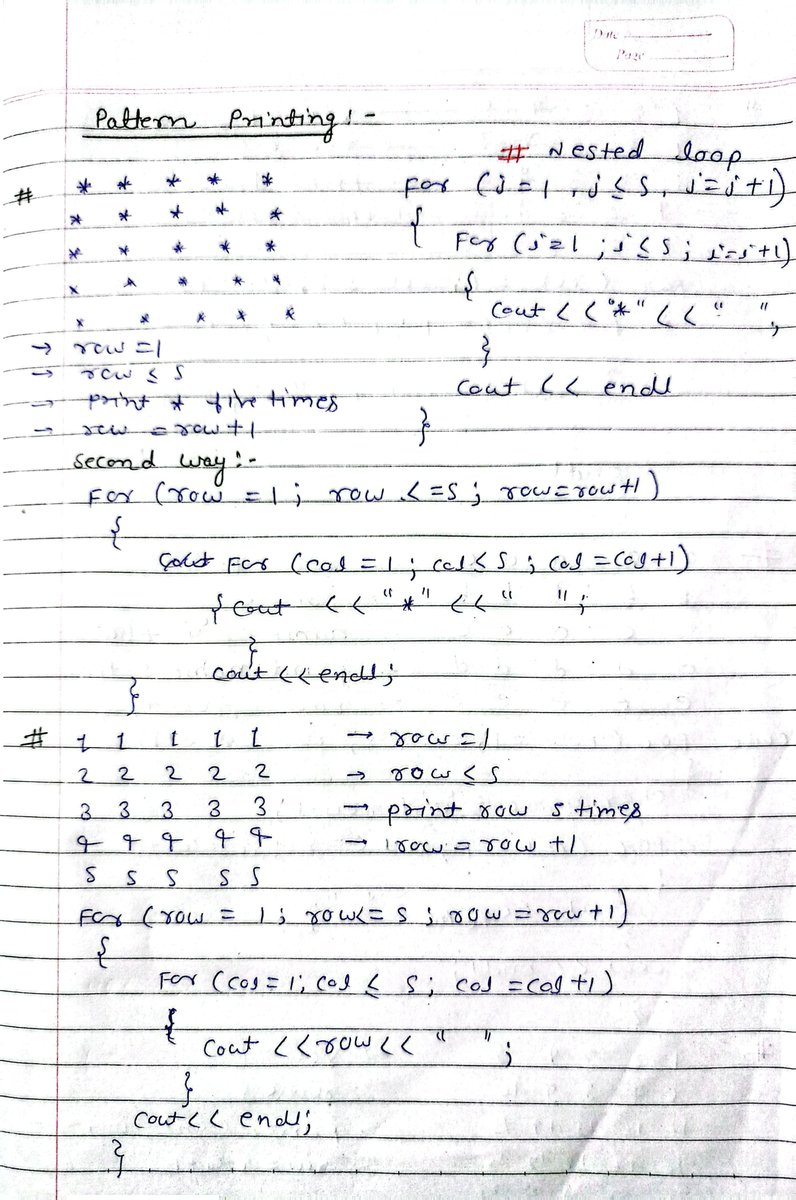 Date
Page
Pattern Printing :-
# Nested loop
# * * * * *
* * * * *
* * * * *
* * * * *
* * * * *
For (i = 1 , i ≤ 5 , i = i + 1)
{
For (j = 1 ; j ≤ 5 ; j = j + 1)
{
Cout << "*" << " ",
}
Cout << endl
}
→ row = 1
→ row ≤ 5
→ print * five times
→ row = row + 1
Second way :-
For (row = 1 ; row <= 5 ; row = row + 1)
{
For (col = 1 ; col ≤ 5 ; col = col + 1)
{ Cout << "*" << " " ;
}
Cout << endl ;
}
# 1 1 1 1 1 → row = 1
2 2 2 2 2 → row ≤ 5
3 3 3 3 3 → print row 5 times
4 4 4 4 4 → row = row + 1
5 5 5 5 5
For (row = 1 ; row <= 5 ; row = row + 1)
{
For (col = 1 ; col ≤ 5 ; col = col + 1)
{
Cout << row << " " ;
}
Cout << endl ;
}